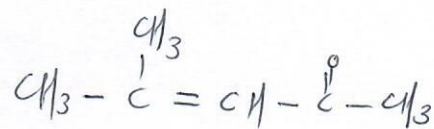 CH3
O
CH3 - C = CH - C - CH3